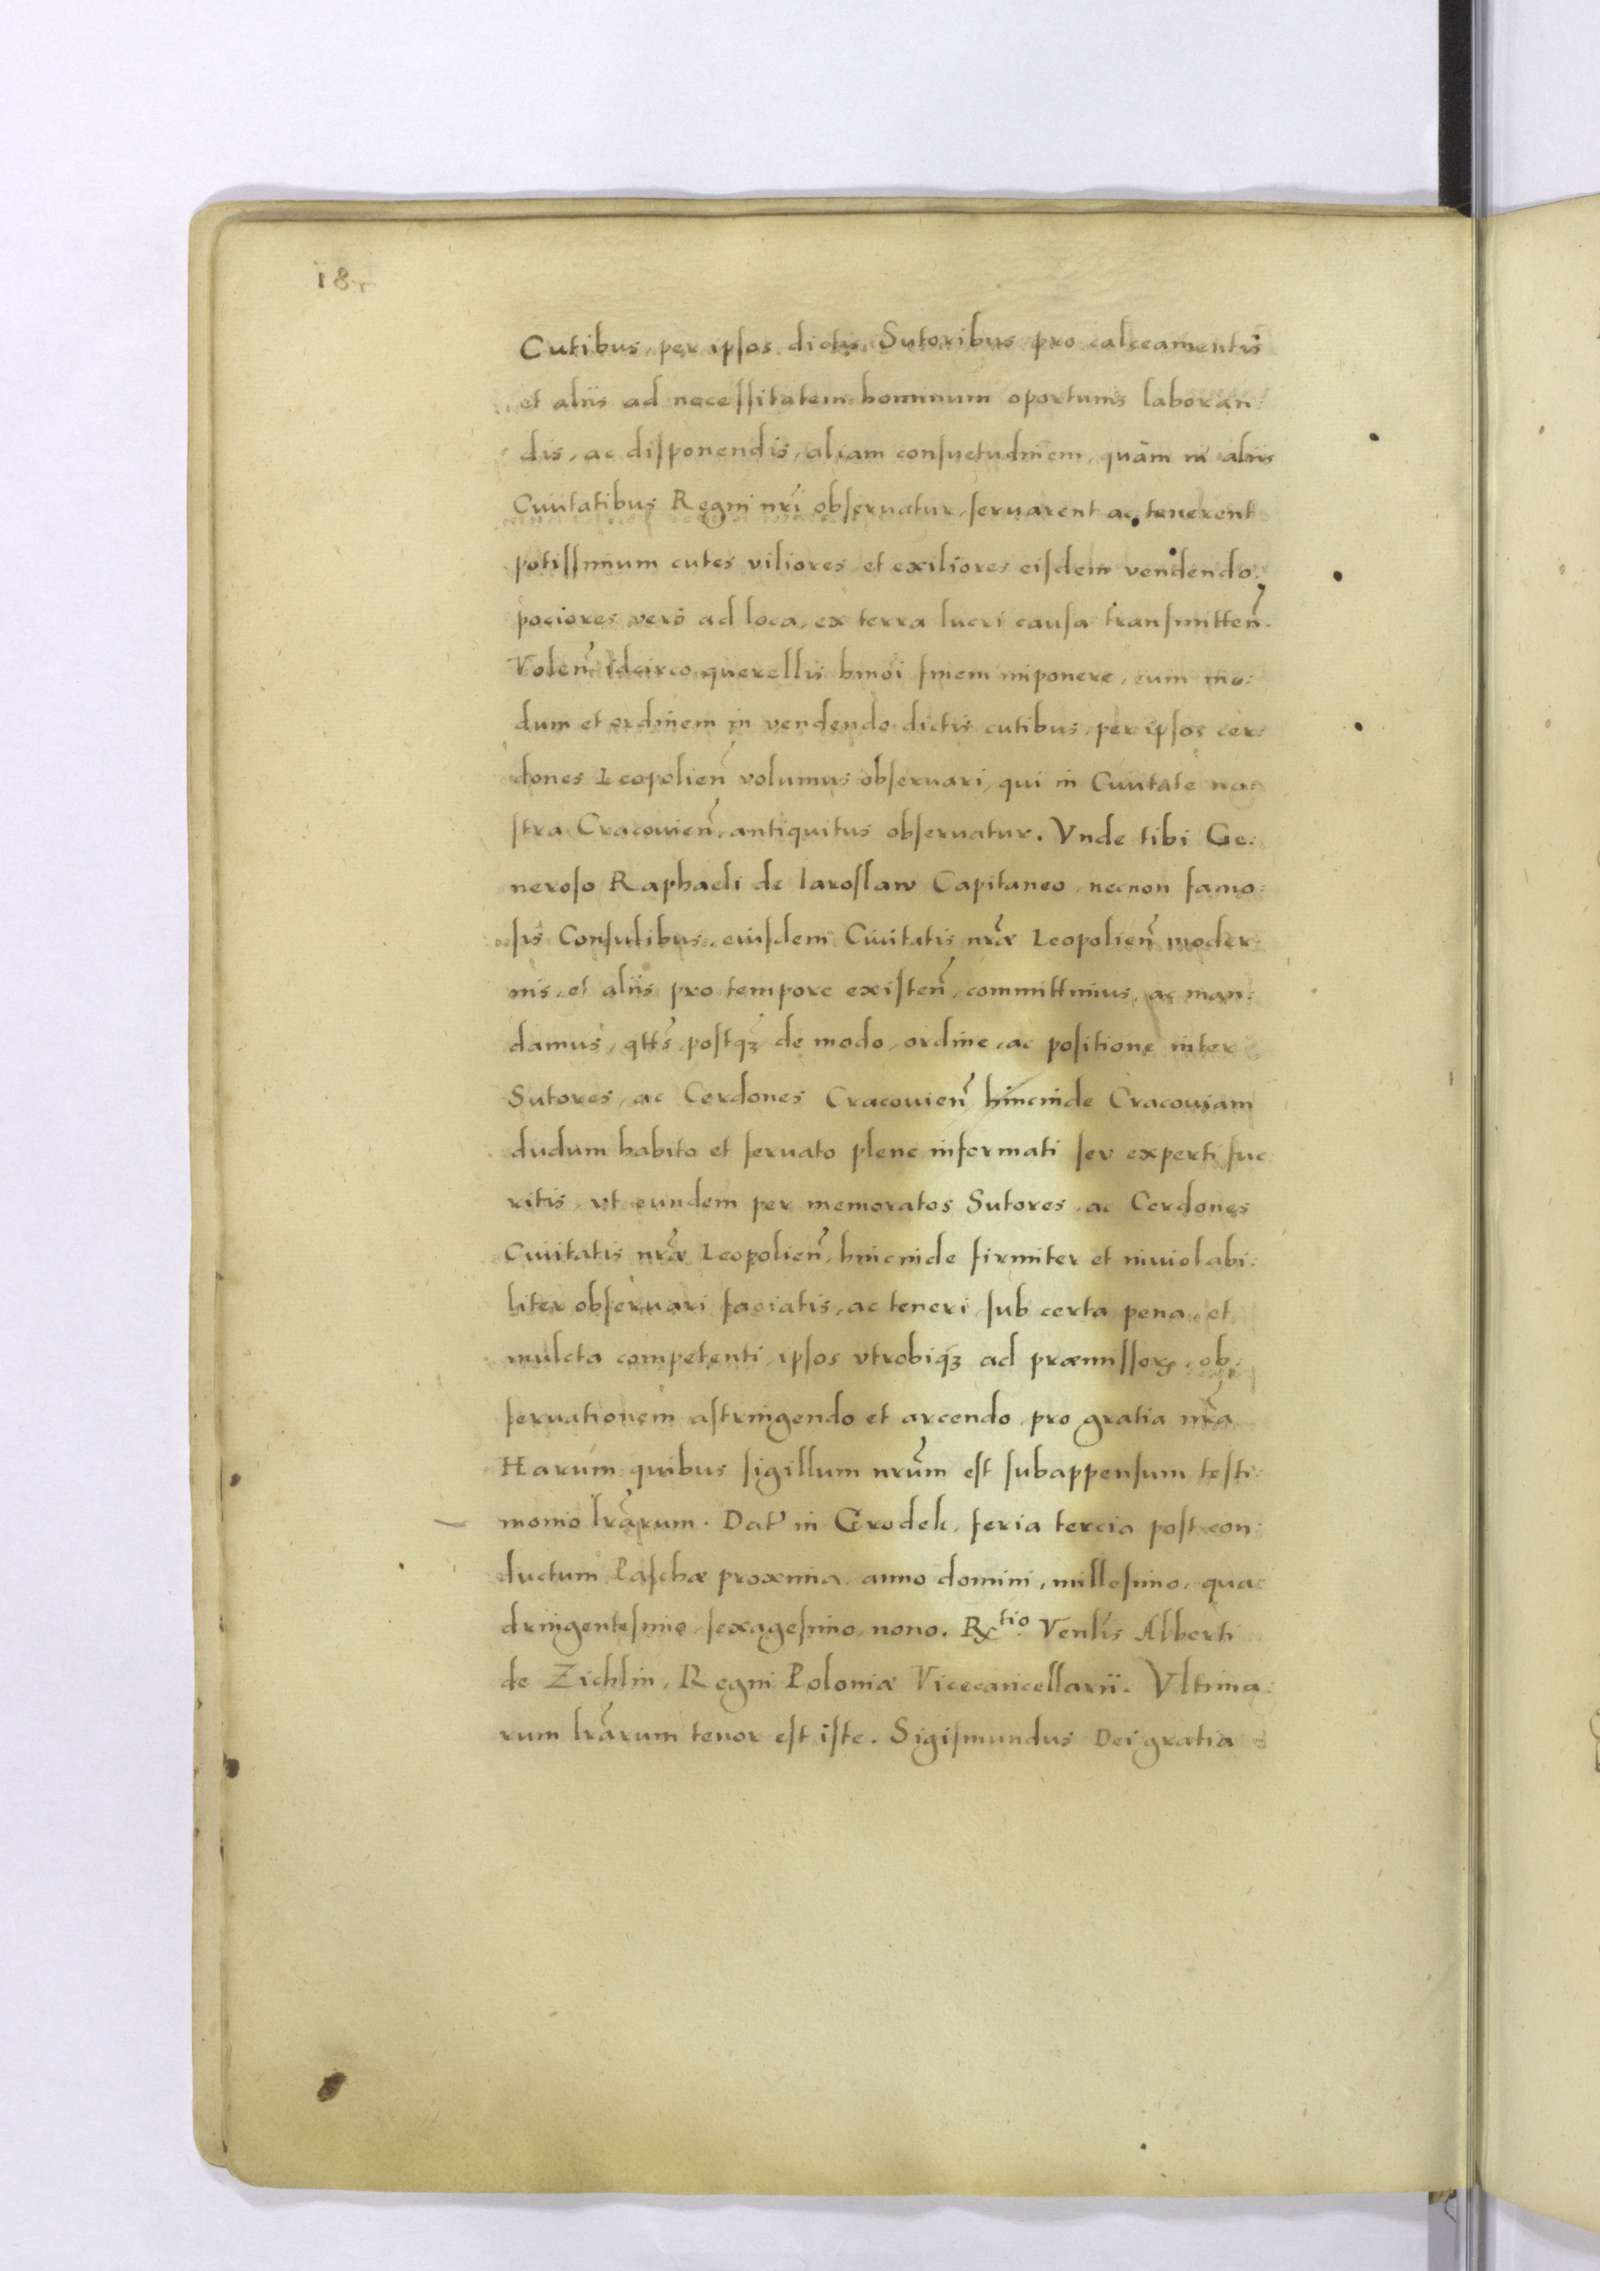 18r
Cutibus, per ipsos dictis Sutoribus pro calceamentis
et aliis ad necessitatem hominum oportunis laboran:
dis, ac disponendis, aliam consuetudinem, quàm in aliis
Ciuitatibus Regni nri obseruatur, seruarent ac tenerent
potissimum cutes viliores et exiliores eisdem vendendo,
pociores verò ad loca, ex terra lucri causa transmitten.
Volen idcirco querellis hmoi finem imponere, eum mo:
dum et ordinem in vendendo dictis cutibus, per ipsos cer:
dones Leopolien volumus obseruari, qui in Ciuitate no:
stra Cracouien, antiquitus obseruatur. Vnde tibi Ge:
neroso Raphaeli de Iaroslaw Capitaneo, necnon famo:
sis Consulibus, eiusdem Ciuitatis nræ Leopolien moder:
nis, et aliis pro tempore existen, committimus, ac man:
damus, qtts postqꝫ de modo, ordine, ac positione inter
Sutores, ac Cerdones Cracouien hincinde Cracouiam
dudum habito et seruato plene informati seu experti fue
ritis, vt eundem per memoratos Sutores, ac Cerdones
Ciuitatis nræ Leopolien, hincinde firmiter et inuiolabi:
liter obseruari faciatis, ac teneri, sub certa pena, et
mulcta competenti, ipsos vtrobiqꝫ ad præmissorꝝ ob:
seruationem astringendo et arcendo, pro gratia nra
Harum quibus sigillum nrum est subappensum testi:
monio lrarum. Dat in Grodek, feria tercia post con:
ductum Paschæ proxima, anno domini, millesimo, qua:
dringentesimo, sexagesimo, nono. Rtio Venlis Alberti
de Zichlin, Regni Poloniæ Vicecancellarii. Vltima:
rum lrarum tenor est iste. Sigismundus Dei gratia